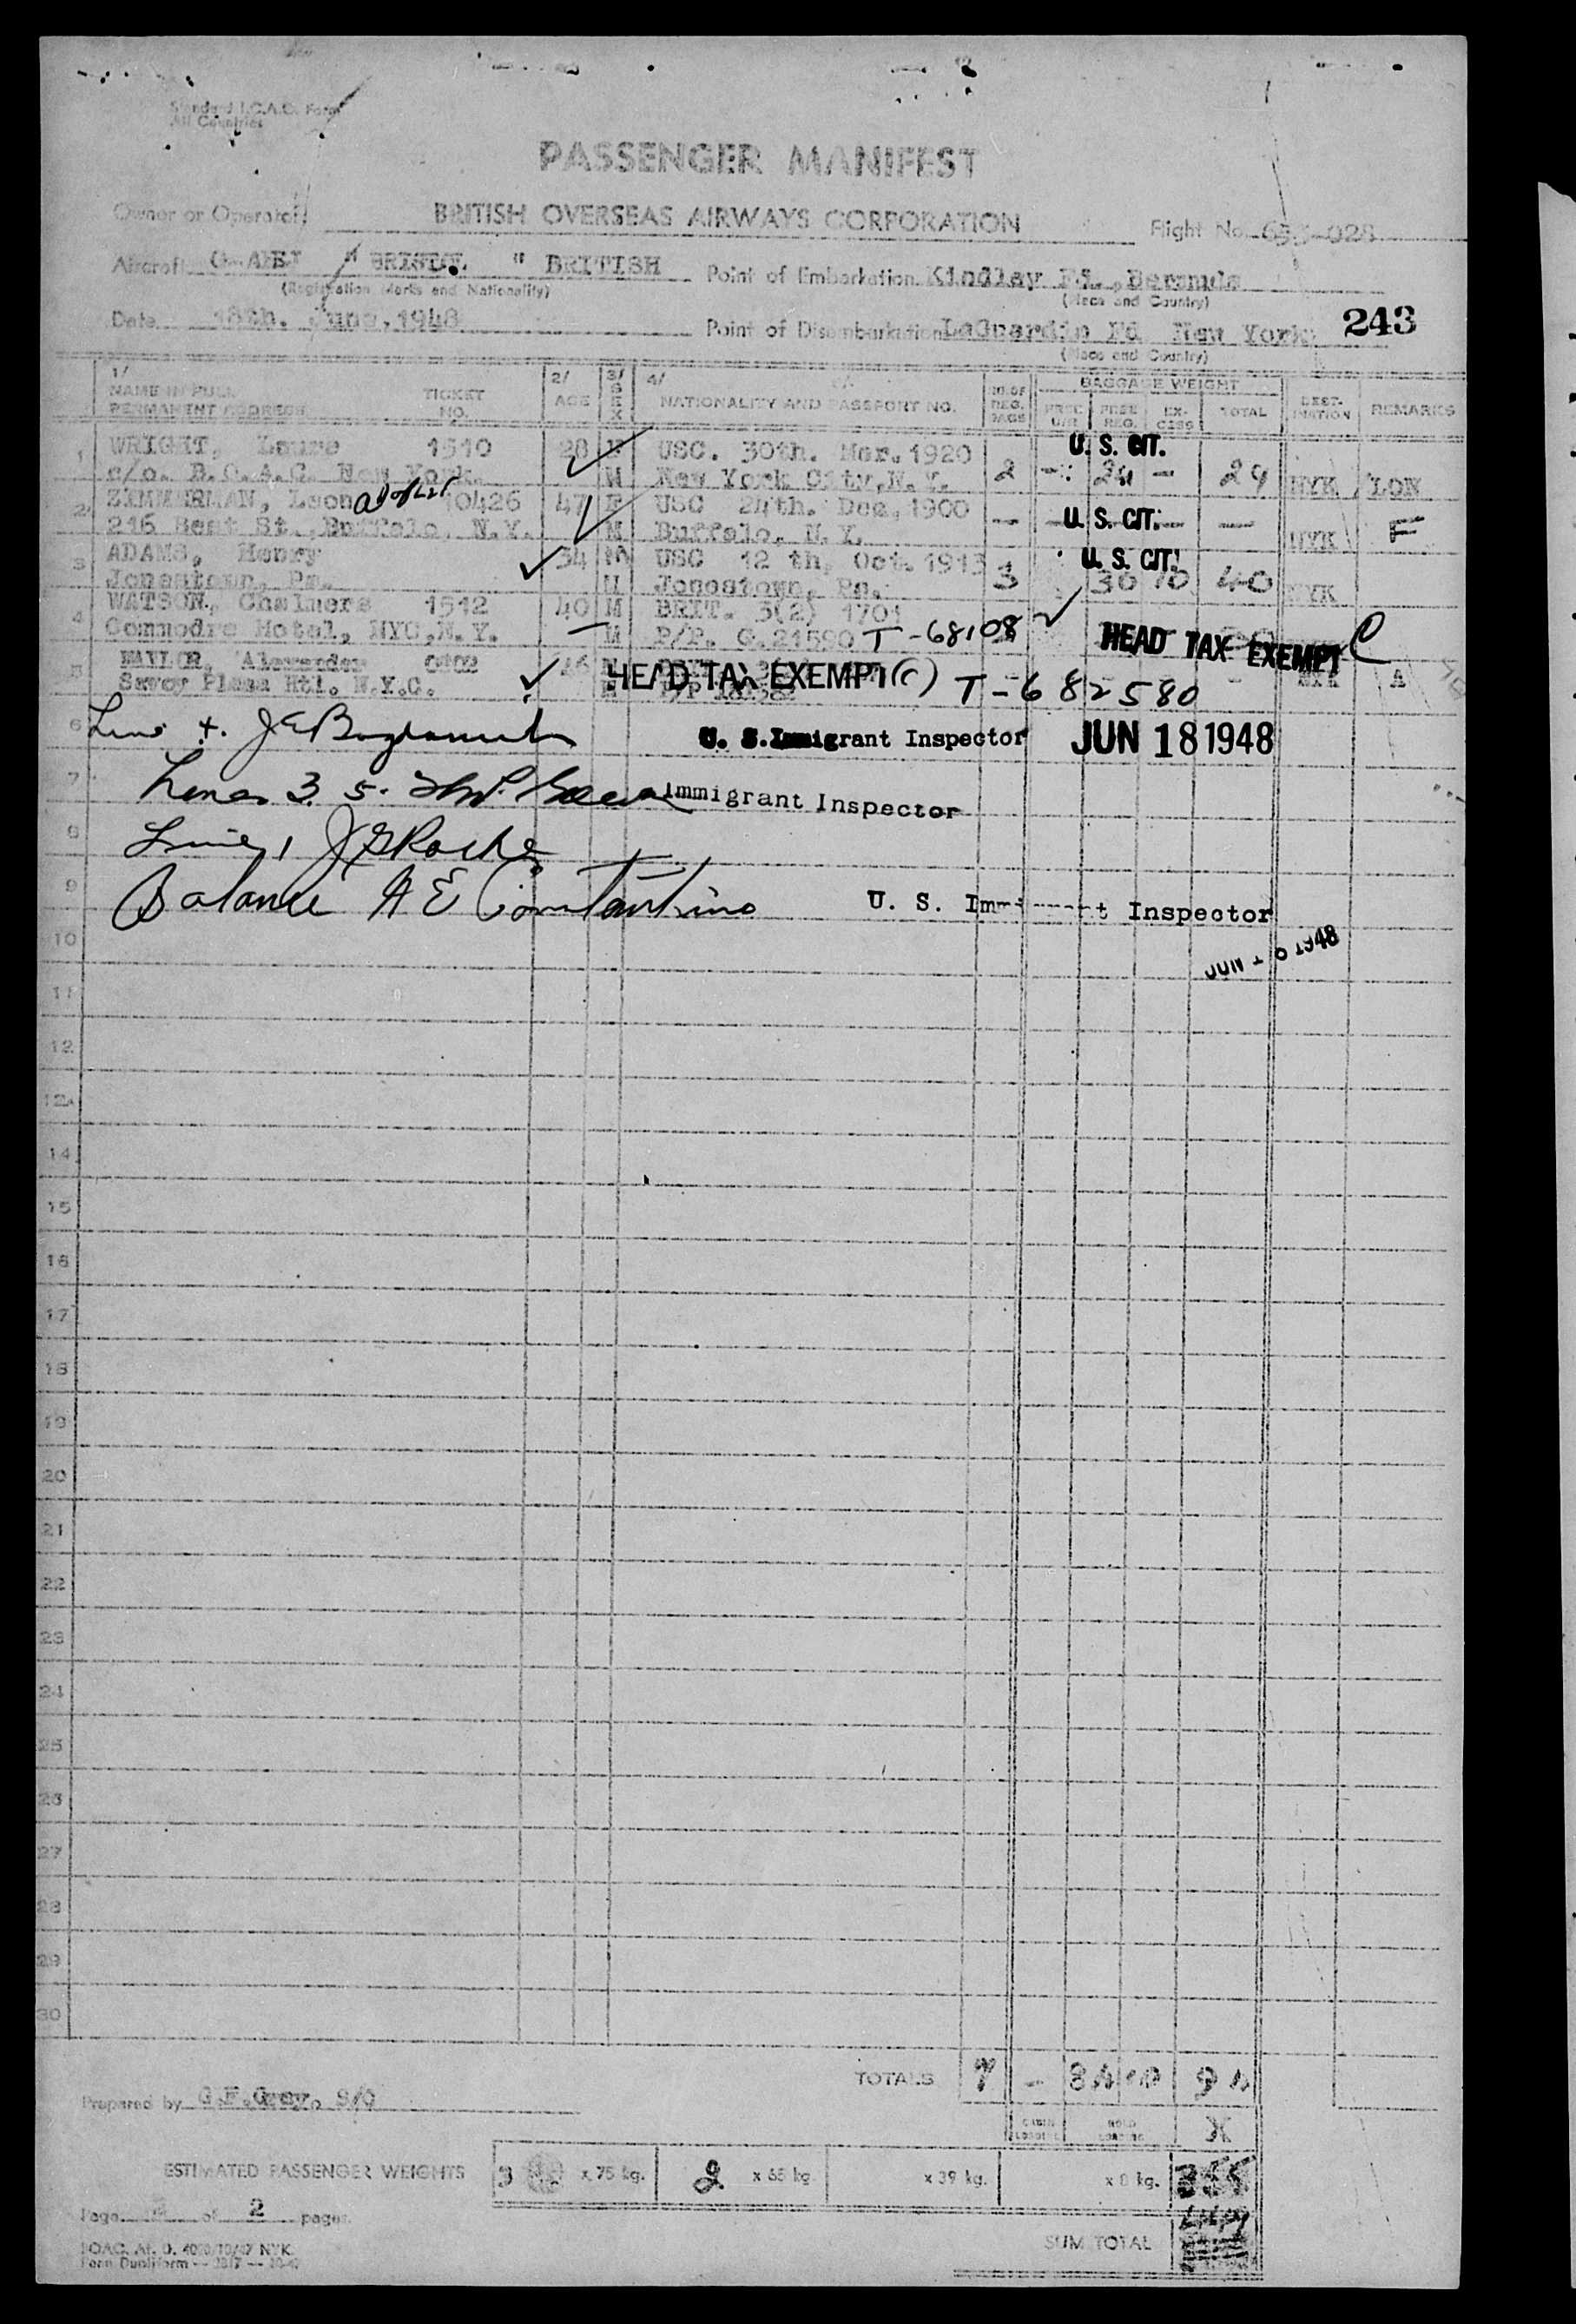 Standard I.C.A.O. Form
All Countries
PASSENGER MANIFEST
Owner or Operator BRITISH OVERSEAS AIRWAYS CORPORATION Flight No.
Aircraft " " BRITISH Point of Embarkation Kindley Fd., Bermuda
(Registration Marks and Nationality) (Place and Country)
Date 18th. June, 1948 Point of Disembarkation LaGuardia Fd New York 243
(Place and Country)
1/ NAME IN FULL PERMANENT ADDRESS TICKET NO. 2/ AGE 3/ SEX 4/ NATIONALITY AND PASSPORT NO. NO. OF REG. BAGS BAGGAGE WEIGHT FREE REG. EXCESS TOTAL DESTINATION REMARKS
U. S. CIT.
1 WRIGHT, 1510 28 F USC. 30th. Mar. 1920
c/o. B.O.A.C. New York. M New York City, N.Y. 2 - 24 - 24 NYK LON
2 ZIMMERMAN, 10426 47 F USC 24th. Dec. 1900
U. S. CIT.
216 Best St., Buffalo, N.Y. M Buffalo, N.Y. — — — NYK F
3 ADAMS, Henry 34 M USC 12 th, Oct. 1913 U. S. CIT.
Jonestown, Pa. M Jonestown, Pa. 3 30 10 40 NYK
4 WATSON, Chalmers 1512 40 M BRIT. 3(2) 1701
Commodre Hotel, NYC, N.Y. M P/P. G.21590 T-68108 HEAD TAX EXEMPT C
5 Alexander
Savoy Plaza Htl. N.Y.C. HEAD TAX EXEMPT (C) T-682580 A
6 U. S. Immigrant Inspector JUN 18 1948
7 Lines 3. 5. Immigrant Inspector
8 Line 1 J G Roche
9 Balance A E Constantino U. S. Inspector
10 1948
11
12
14
15
16
17
18
19
20
21
22
23
24
25
26
27
28
29
30
TOTALS 7 -
Prepared by G.F. Gray, S/O
CABIN LOADING HOLD LOADING X
ESTIMATED PASSENGER WEIGHTS 3 x 75 kg. 2 x 65 kg. x 39 kg. x 8 kg. 355
Page of 2 pages.
SUM TOTAL